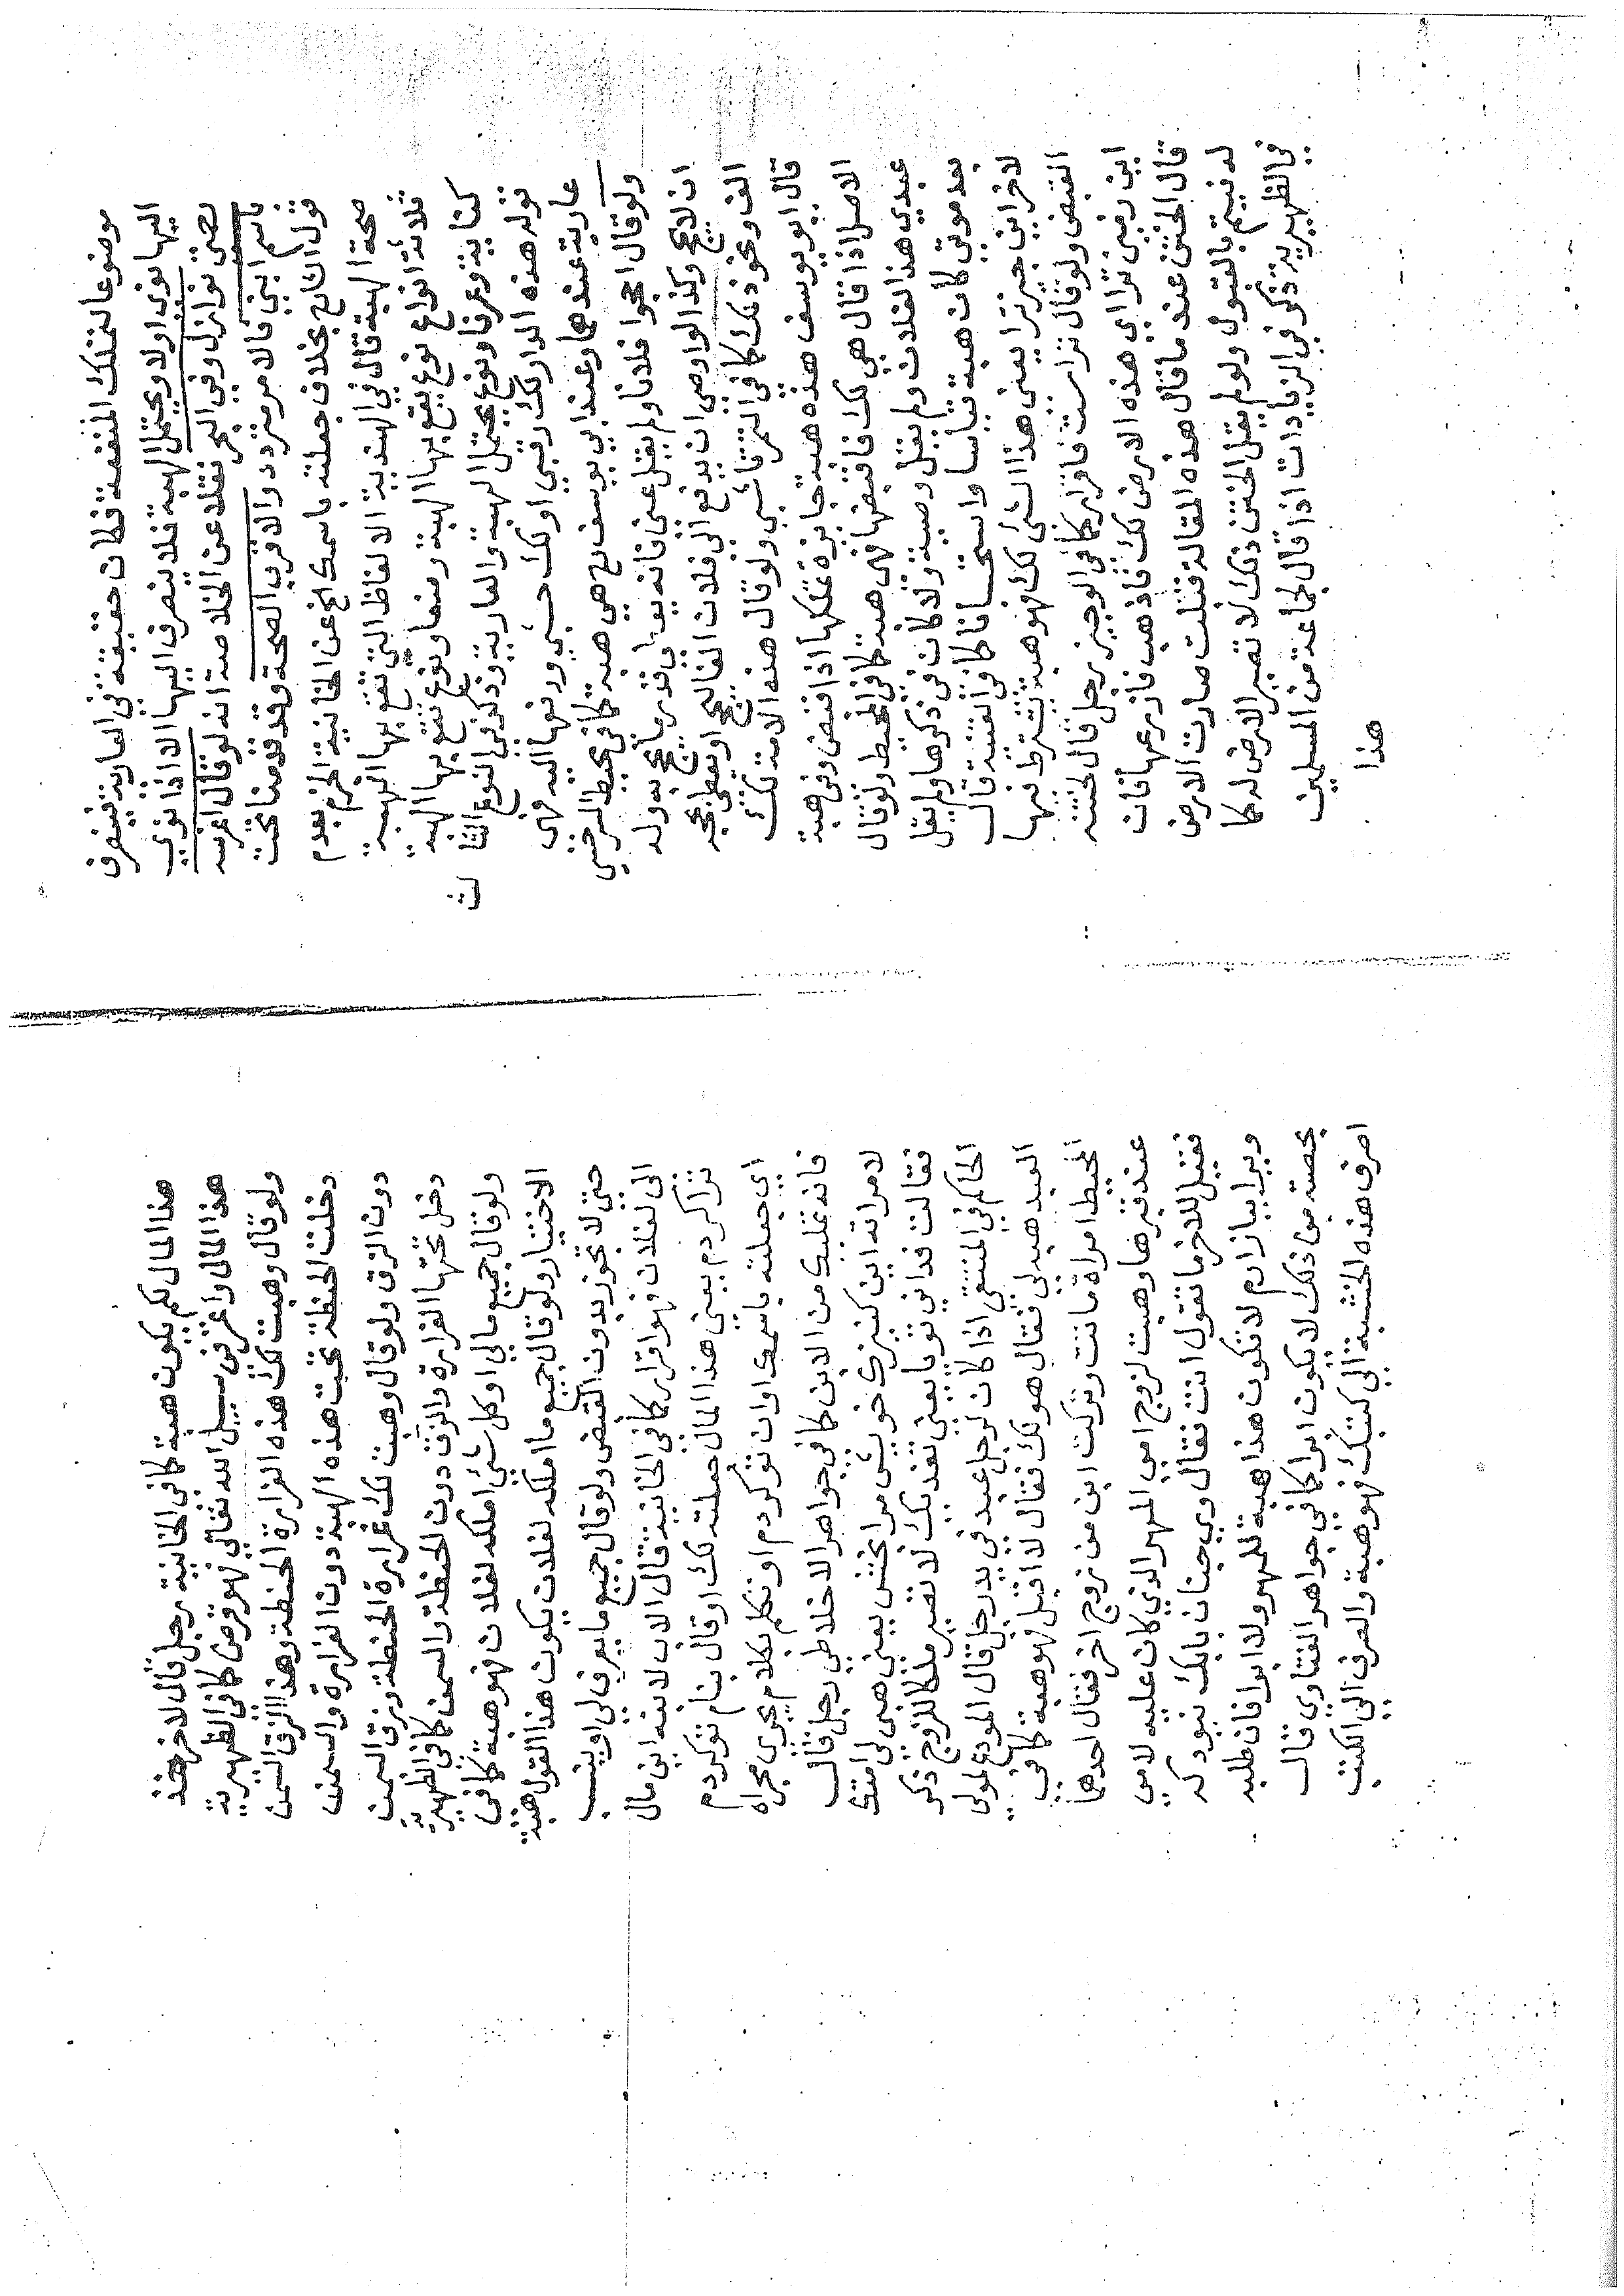 موضوعا لتمليك المنفعة فكان حقيقة في العارية فينصرف
اليها نوى اولا ويحتمل الهبة فلا ينصرف اليها الا اذا نوى
رضي نوازل وفي البحر نقلا عن الخلاصة انه لو قال اغرسه
باسم ابني فالامر متردد والاقرب الصحة وقد قدمنا تحت
قول الشارح بخلاف جعلته باسمك الخ عن الخانية الجزم بعدم
صحة الهبة قال في الهندية الالفاظ التي تقع بها الهبة
ثلاثة انواع نوع يقع بها الهبة وضعا ونوع تقع بها الهبة
كناية وعرفا ونوع يحتمل الهبة والعارية وذكر في النوع الثا
لث
قوله هذه الدار لك رقبي او لك حبس ودفعها اليه فهى
عارية عندهما وعند ابي يوسف رح هي هبة كما في محيط السرخسي
ولو قال احجوا فلانا ولم يقل عني فانه يعطى قدر ما يحج به وله
ان لا يحج وكذا لو اوصى ان يدفع الى فلان الفا ليحج او يعطى بحجه
الف ونحو ذلك كما في التمرتاشي ولو قال هذه الامة لك
قال ابو يوسف هذه هبة جايزة تملكها اذا قبض وفي هبة
الاصل اذا قال هي لك فاقبضها فهى هبة كما في المحيط ولو قال
عبدي هذا لفلان ولم يقل وصية ولا كان في ذكرها ولم يقل
بعد موتي كان هبة قياسا واستحسانا كما في القنية قال
لاخر اين چيز ترا يعني هذا الشئ لك فهو هبة يشترط فيها
القبض ولو قال تراست فاقرار كما في الوجيز رجل قال لختنه
اين زمين ترا اي هذه الارض لك فاذهب فازرعها فان
قال الختن عند ما قال هذه المقالة قبلت صارت الارض
له فيتم بالقبول ولو لم يقل الختن ذلك لا تصير الارض له كما
في الظهيرية ذكر في الزيادات اذا قال لجماعة من المسلمين
هذا
هذا المال لكم يكون هبة كما في الخانية رجل قال لاخر خذ
هذا المال واغز في سبيل الله تعالى فهو قرض كما في الظهيرية
ولو قال وهبت لك هذه الغرارة الحنطة وهذا الزق السمن
دخلت الحنطة تحت هذه الهبة دون الغرارة والسمن
دون الزق ولو قال وهبت لك غرارة الحنطة وزق السمن
دخل تحتها الغرارة والزق دون الحنطة والسمن كما في الظهيرية
ولو قال جميع مالي او كل شئ املكه لفلان فهو هبة كما في
الاختيار ولو قال جميع ما املكه لفلان يكون هذا القول هبة
حتى لا تجوز بدون القبض ولو قال جميع ما يعرف لي او ينسب
الى لفلان فهو اقرار كما في الخانية قال الاب لابنه اين مال
ترا كردم يعني هذا المال جعلته لك او قال بنام تو كردم
اي جعلته باسمك او ان تو كردم او تكلم بكلام يجري مجراه
فانه تمليك من الابن كما في جواهر الاخلاطي رجل قال
لامراته اين كنيزك خويش مرا بخش يعني هبي لي امتك
فقالت فداي تو باد يعني تفديك لا تصير ملكا للزوج ذكر
الحاكم في المنتقى اذا كان لرجل عبد في يد رجل قال المودع لمولى
العبد هبه لي فقال هو لك فقال لا اقبل فهو هبة كما في
المحيط امراة ماتت وتركت ابن من زوج اخر فقال احدهما
عند قبرها وهبت لزوج امي المهر الذي كان عليه لامي
فقيل للاخر ما تقول انت فقال وي چنان بابك نبود كه
ويرا بيازارم لا تكون هذا هبة للمهر ولا ابرا فان طلبه
بحصته من ذلك لا يكون ابرا كما في جواهر الفتاوى قال
اصرف هذه الخشبة الى كتبك فهو هبة والصرف الى الكتب